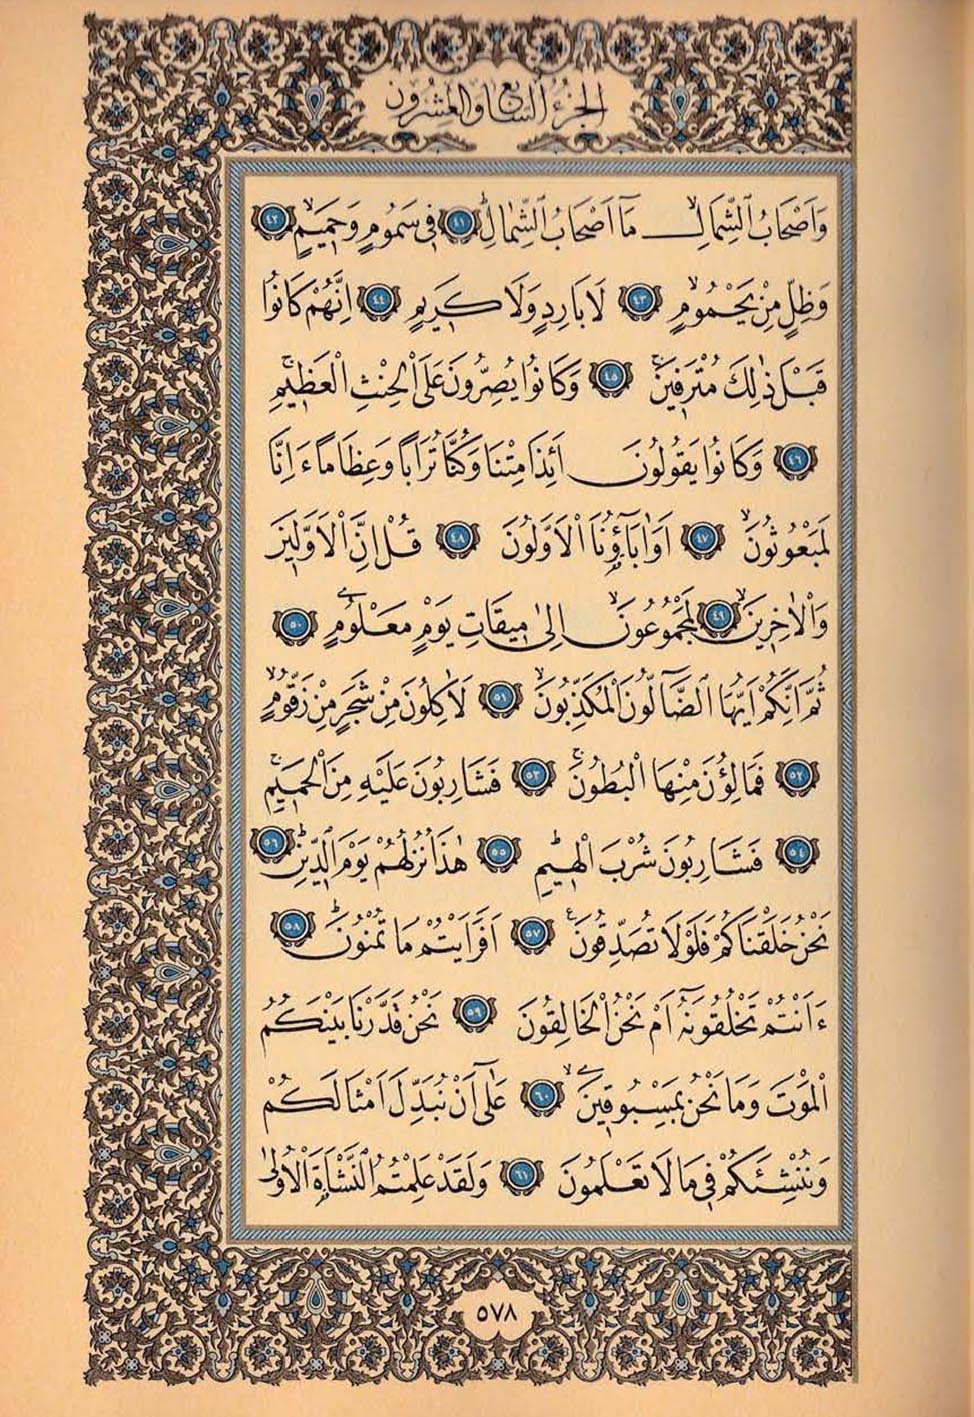 الجزء السابع والعشرون
وَاَصْحَابُ الشِّمَالِۙ مَٓا اَصْحَابُ الشِّمَالِۜ ﴿٤١﴾ ف۪ي سَمُومٍ وَحَم۪يمٍۙ ﴿٤٢﴾
وَظِلٍّ مِنْ يَحْمُومٍۙ ﴿٤٣﴾ لَا بَارِدٍ وَلَا كَر۪يمٍ ﴿٤٤﴾ اِنَّهُمْ كَانُوا
قَبْلَ ذٰلِكَ مُتْرَف۪ينَۚ ﴿٤٥﴾ وَكَانُوا يُصِرُّونَ عَلَى الْحِنْثِ الْعَظ۪يمِۚ
﴿٤٦﴾ وَكَانُوا يَقُولُونَ اَئِذَا مِتْنَا وَكُنَّا تُرَابًا وَعِظَامًا ءَاِنَّا
لَمَبْعُوثُونَۙ ﴿٤٧﴾ اَوَاٰبَٓاؤُ۬نَا الْاَوَّلُونَ ﴿٤٨﴾ قُلْ اِنَّ الْاَوَّل۪ينَ
وَالْاٰخِر۪ينَۙ ﴿٤٩﴾ لَمَجْمُوعُونَۙ اِلٰى م۪يقَاتِ يَوْمٍ مَعْلُومٍ ﴿٥٠﴾
ثُمَّ اِنَّكُمْ اَيُّهَا الضَّٓالُّونَ الْمُكَذِّبُونَۙ ﴿٥١﴾ لَاٰكِلُونَ مِنْ شَجَرٍ مِنْ زَقُّومٍۙ
﴿٥٢﴾ فَمَالِؤُ۫نَ مِنْهَا الْبُطُونَۚ ﴿٥٣﴾ فَشَارِبُونَ عَلَيْهِ مِنَ الْحَم۪يمِۚ
﴿٥٤﴾ فَشَارِبُونَ شُرْبَ الْه۪يمِۜ ﴿٥٥﴾ هٰذَا نُزُلُهُمْ يَوْمَ الدّ۪ينِۜ ﴿٥٦﴾
نَحْنُ خَلَقْنَاكُمْ فَلَوْلَا تُصَدِّقُونَ ﴿٥٧﴾ اَفَرَاَيْتُمْ مَا تُمْنُونَۜ ﴿٥٨﴾
ءَاَنْتُمْ تَخْلُقُونَهُٓ اَمْ نَحْنُ الْخَالِقُونَ ﴿٥٩﴾ نَحْنُ قَدَّرْنَا بَيْنَكُمُ
الْمَوْتَ وَمَا نَحْنُ بِمَسْبُوق۪ينَۙ ﴿٦٠﴾ عَلٰٓى اَنْ نُبَدِّلَ اَمْثَالَكُمْ
وَنُنْشِئَكُمْ ف۪ي مَا لَا تَعْلَمُونَ ﴿٦١﴾ وَلَقَدْ عَلِمْتُمُ النَّشْاَةَ الْاُو۫لٰى
٥٧٨